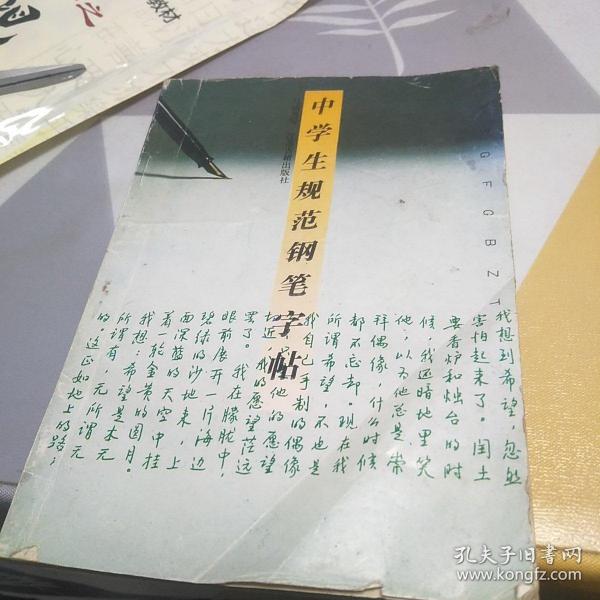 之
教材
中学生规范钢笔字帖
出版社
GFGBZT
我想到希望,忽然
害怕起来了。闰土
要香炉和烛台的时
候,我还暗地里笑
他,以为他总是崇
拜偶像,什么时候
都不忘却。现在我
所谓希望,不也是
我自己手制的偶像
他的愿望
切近,我的愿望茫远
罢了。我在朦胧中,
眼前展开一片海边
碧绿的沙地来,上
面深蓝的天空中挂
着一轮金黄的圆月。
我想:希望是本无
所谓有,无所谓无
的。这正如地上的路;
孔夫子旧书网
www.kongfz.com